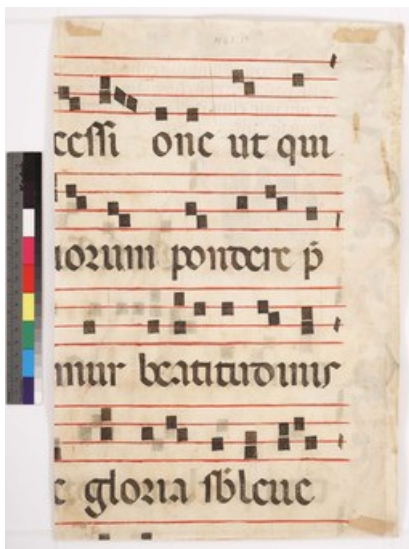 ceſſi one ut qui
orum pondere p̄
mur beatitudinis
e gloria ſb̄leue